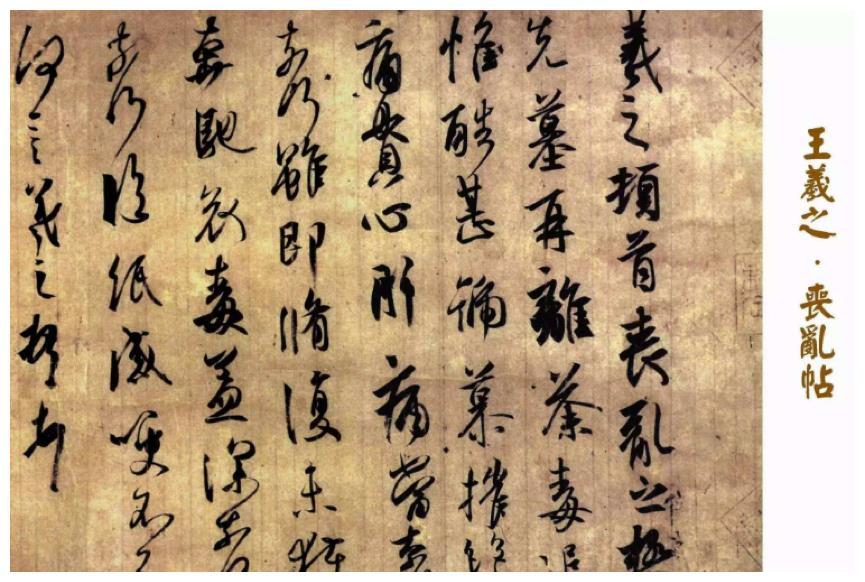 羲之頓首喪亂之極
先墓再離荼毒追
惟酷甚號慕摧絕
痛貫心肝痛當奈
奈何雖即脩復未獲
奔馳哀毒益深奈何
奈何臨紙感哽不
何言羲之頓首
王羲之·喪亂帖